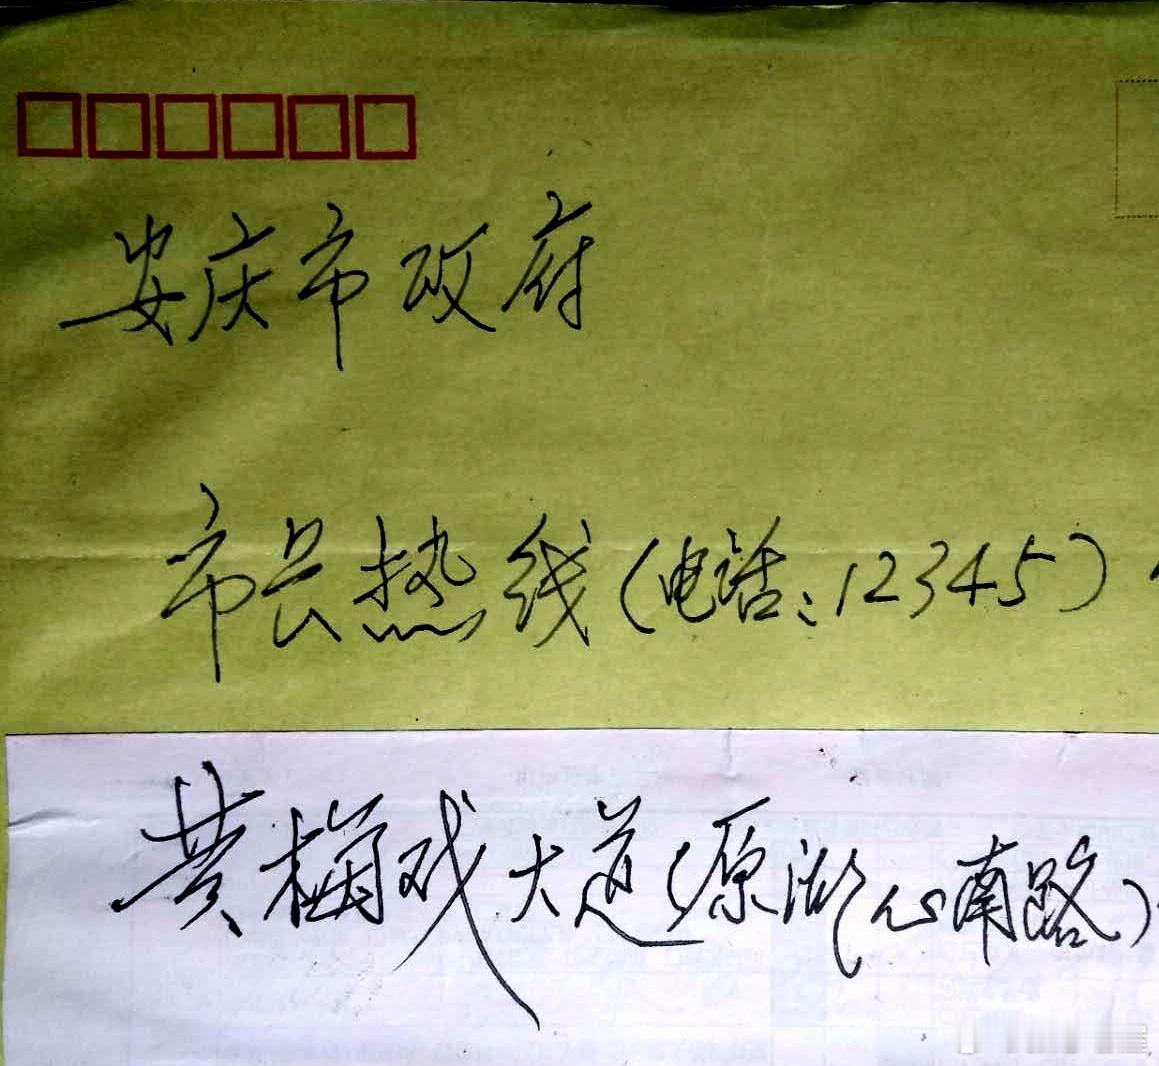 安庆市政府
市长热线(电话:12345)
黄梅戏大道(原湖心南路)